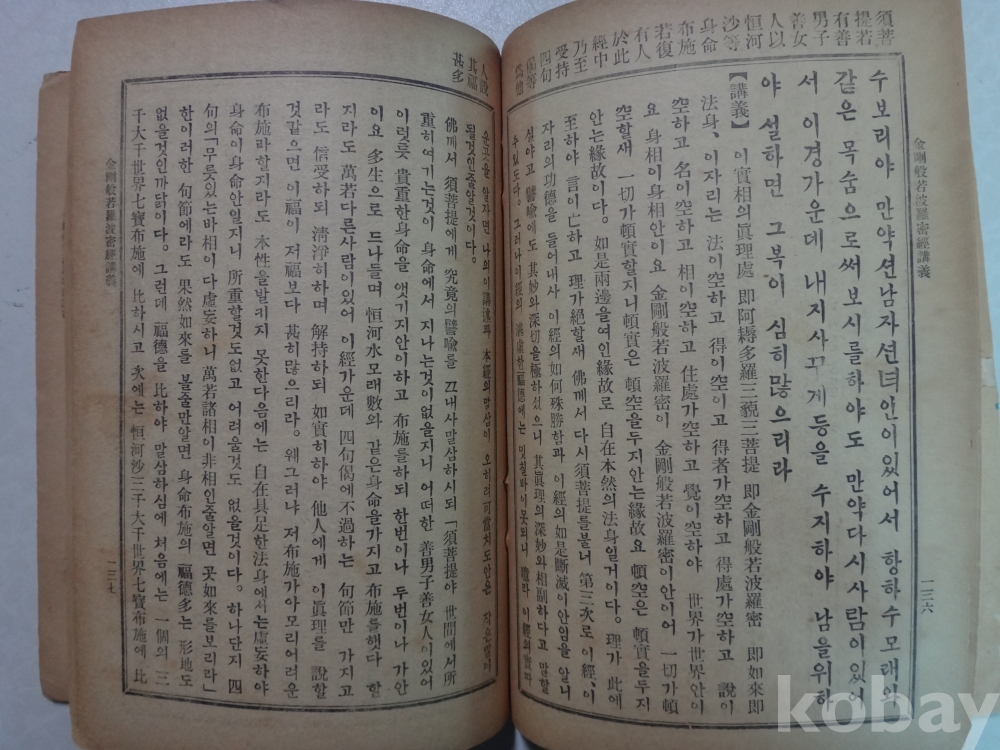 須菩
提若
有善
男子
善女
人以
恒河
沙等
身命
布施
若復
有人
於此
經中
乃至
受持
四句
偈等
爲他
수보리야 만약션남자션녀인이있어서 항하수모래와
같은 목숨으로써보시를하야도 만약다시사람이있어
서 이경가운데 내지사구게등을 수지하야 남을위하
야 설하면 그복이 심히많으리라
【講義】 이實相의眞理處 即阿耨多羅三藐三菩提 即金剛般若波羅密 即如來即
法身、이자리는 法이空하고 得이空하고 得者가空하고 得處가空하고 說이
空하고 名이空하고 相이空하고 住處가空하고 覺이空하야 世界가世界안이
요 身相이身相안이요 金剛般若波羅密이 金剛般若波羅密이안이어 一切가頓
空할새 一切가頓實할지니頓實은 頓空을두지안는緣故요 頓空은 頓實을두지
안는緣故이다。如是兩邊을여인緣故로 自在本然의法身일거이다。理가 此에
至하야 言이亡하고 理가絕할새 佛께서다시須菩提를불너 第三次로 이經、이
자리의功德을말삼하사 이經의如何殊勝함과 이經의如是斷滅이안임을알니
심이야고 譬喩에도 其妙와深切을極하섰으니 其眞理의深妙와相副하다고 말할
수있도다。그러나이經의
金剛般若波羅密經講義
一三六
人說
其福
甚多
될것인줄알것이다。
佛께서 須菩提에게 究竟의譬喩를 끄내사말삼하시되「須菩提야 世間에서所
重히여기는것이 身命에서 지나는것이없을지니 어떠한 善男子善女人이있어
이렇틋 貴重한身命을 앳기지안이하고 布施를하되 한번이나 두번이나 가안
이요 多生으로 드나들며 恒河水모래數와 같은身命을가지고 布施를햇다 할
지라도 萬若다른사람이있어 이經가운데 四句偈에不過하는 句節만 가지고
라도 信受하되 淸淨하며 解持하되 如實히하야 他人에게 이眞理를 說할
것같으면 이福이 저福보다 甚히많으리라。웨그러냐 저布施가아모리어려운
布施라할지라도 本性을발키지 못한다음에는 自在具足한法身에서는虛妄하야
身命이身命안일지니 所重할것도없고 어려울것도 없을것이다。하나단지 四
句의「무릇있는바相이다虛妄하니萬若諸相이非相인줄알면 곳如來를보리라」
한이러한 句節에라도 果然如來를 볼줄만알면身命布施의福德多는 形地도
없을것인까닭이다。그런데 福德을 比하야 말삼하심에 처음에는 一個의 三
千大千世界七寶布施에 比하시고 次에는 恒河沙三千大千世界七寶布施에 比
金剛般若波羅密經講義
一三七
kobay